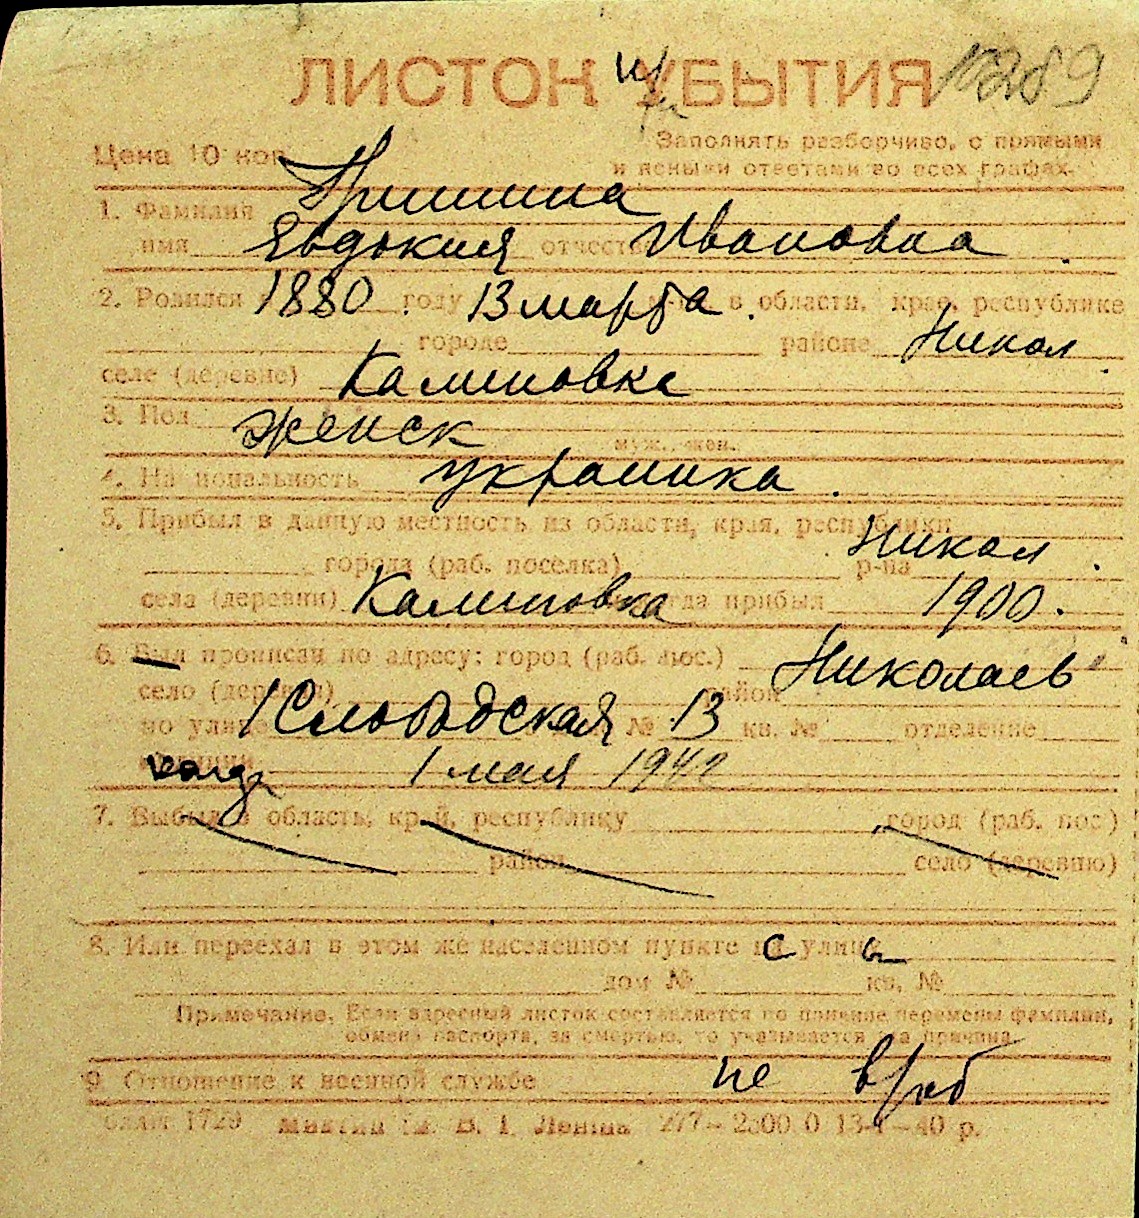 ЛИСТОК УБЫТИЯ
Цена 10 коп.
Заполнять разборчиво, с прямыми
и ясными ответами во всех графах.
1. Фамилия Гришина
имя Евдокия отчество Ивановна
2. Родился в 1880 году 13 марта м-ца в области, крае, республике
городе районе Никол.
селе (деревне) Калиновке
3. Пол женск
муж., жен.
4. Национальность украинка.
5. Прибыл в данную местность из области, края, республики
города (раб. поселка) р-на Никол.
села (деревни) Калиновка когда прибыл 1900.
6. Был прописан по адресу: город (раб. пос.) Николаев
село (деревня) район
по улице 1 Слободская № 13 кв. № отделение
милиции когда 1 мая 1942
7. Выбыл в область, край, республику город (раб. пос)
район село (деревню)
8. Или переехал в этом же населенном пункте с улицы
дом № кв. №
Примечание. Если адресный листок составляется по причине перемены фамилии,
обмена паспорта, за смертью, то указывается эта причина.
9. Отношение к военной службе не
1729 В. І. Леніна 277—2500 0 13-І—40 р.